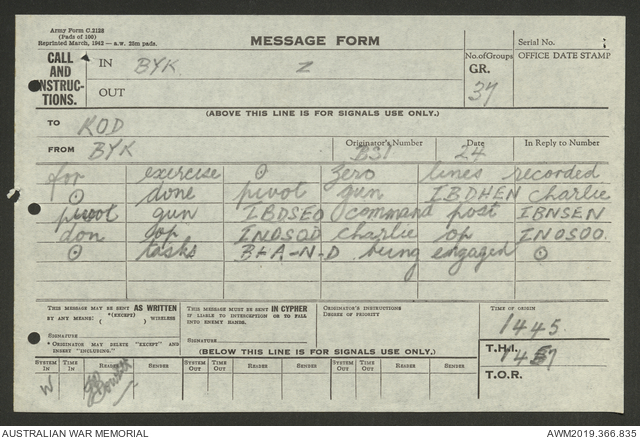 Army Form C.2128
(Pads of 100)
Reprinted March, 1942 — a.w. 25m pads.
MESSAGE FORM
Serial No.
CALL AND INSTRUCTIONS.
IN BYK Z
OUT
No. of Groups
GR.
37
OFFICE DATE STAMP
(ABOVE THIS LINE IS FOR SIGNALS USE ONLY.)
TO KOD
FROM BYK
Originator's Number
BS1
Date
24
In Reply to Number
for exercise ⊙ zero lines recorded
⊙ done pivot gun IBDHEN Charlie
pivot gun IBDSEO command post IBNSEN
don op INDSOD Charlie op INOSOO.
⊙ tasks B+A-N-D being engaged ⊙
THIS MESSAGE MAY BE SENT AS WRITTEN
BY ANY MEANS: *(EXCEPT) ( ) WIRELESS
SIGNATURE
* ORIGINATOR MAY DELETE "EXCEPT" AND INSERT "INCLUDING."
THIS MESSAGE MUST BE SENT IN CYPHER
IF LIABLE TO INTERCEPTION OR TO FALL INTO ENEMY HANDS.
SIGNATURE
ORIGINATOR'S INSTRUCTIONS
DEGREE OF PRIORITY
TIME OF ORIGIN
1445.
T.H.I.
1457
T.O.R.
(BELOW THIS LINE IS FOR SIGNALS USE ONLY.)
SYSTEM IN TIME IN READER SENDER SYSTEM OUT TIME OUT READER SENDER SYSTEM OUT TIME OUT READER SENDER
W
AUSTRALIAN WAR MEMORIAL
AWM2019.366.835